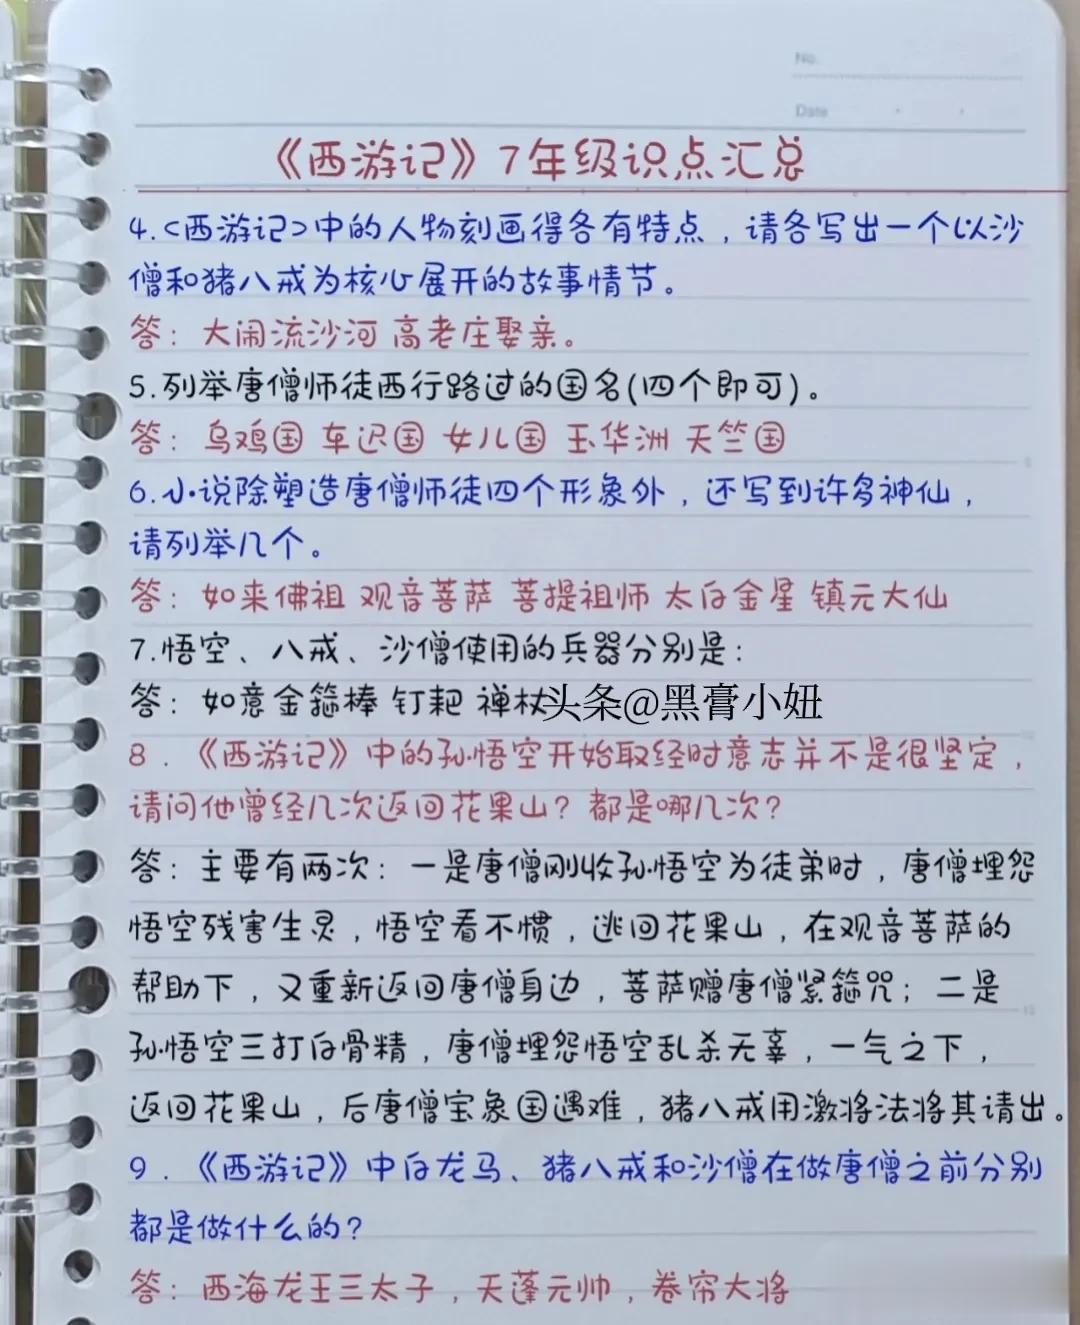 No.
Date
《西游记》7年级识点汇总
4.<西游记>中的人物刻画得各有特点，请各写出一个以沙
僧和猪八戒为核心展开的故事情节。
答：大闹流沙河 高老庄娶亲。
5.列举唐僧师徒西行路过的国名(四个即可)。
答：乌鸡国 车迟国 女儿国 玉华洲 天竺国
6.小说除塑造唐僧师徒四个形象外，还写到许多神仙，
请列举几个。
答：如来佛祖 观音菩萨 菩提祖师 太白金星 镇元大仙
7.悟空、八戒、沙僧使用的兵器分别是：
答：如意金箍棒 钉耙 禅杖
头条@黑膏小妞
8．《西游记》中的孙悟空开始取经时意志并不是很坚定，
请问他曾经几次返回花果山？都是哪几次？
答：主要有两次：一是唐僧刚收孙悟空为徒弟时，唐僧埋怨
悟空残害生灵，悟空看不惯，逃回花果山，在观音菩萨的
帮助下，又重新返回唐僧身边，菩萨赠唐僧紧箍咒；二是
孙悟空三打白骨精，唐僧埋怨悟空乱杀无辜，一气之下，
返回花果山，后唐僧宝象国遇难，猪八戒用激将法将其请出。
9．《西游记》中白龙马、猪八戒和沙僧在做唐僧之前分别
都是做什么的？
答：西海龙王三太子，天蓬元帅，卷帘大将